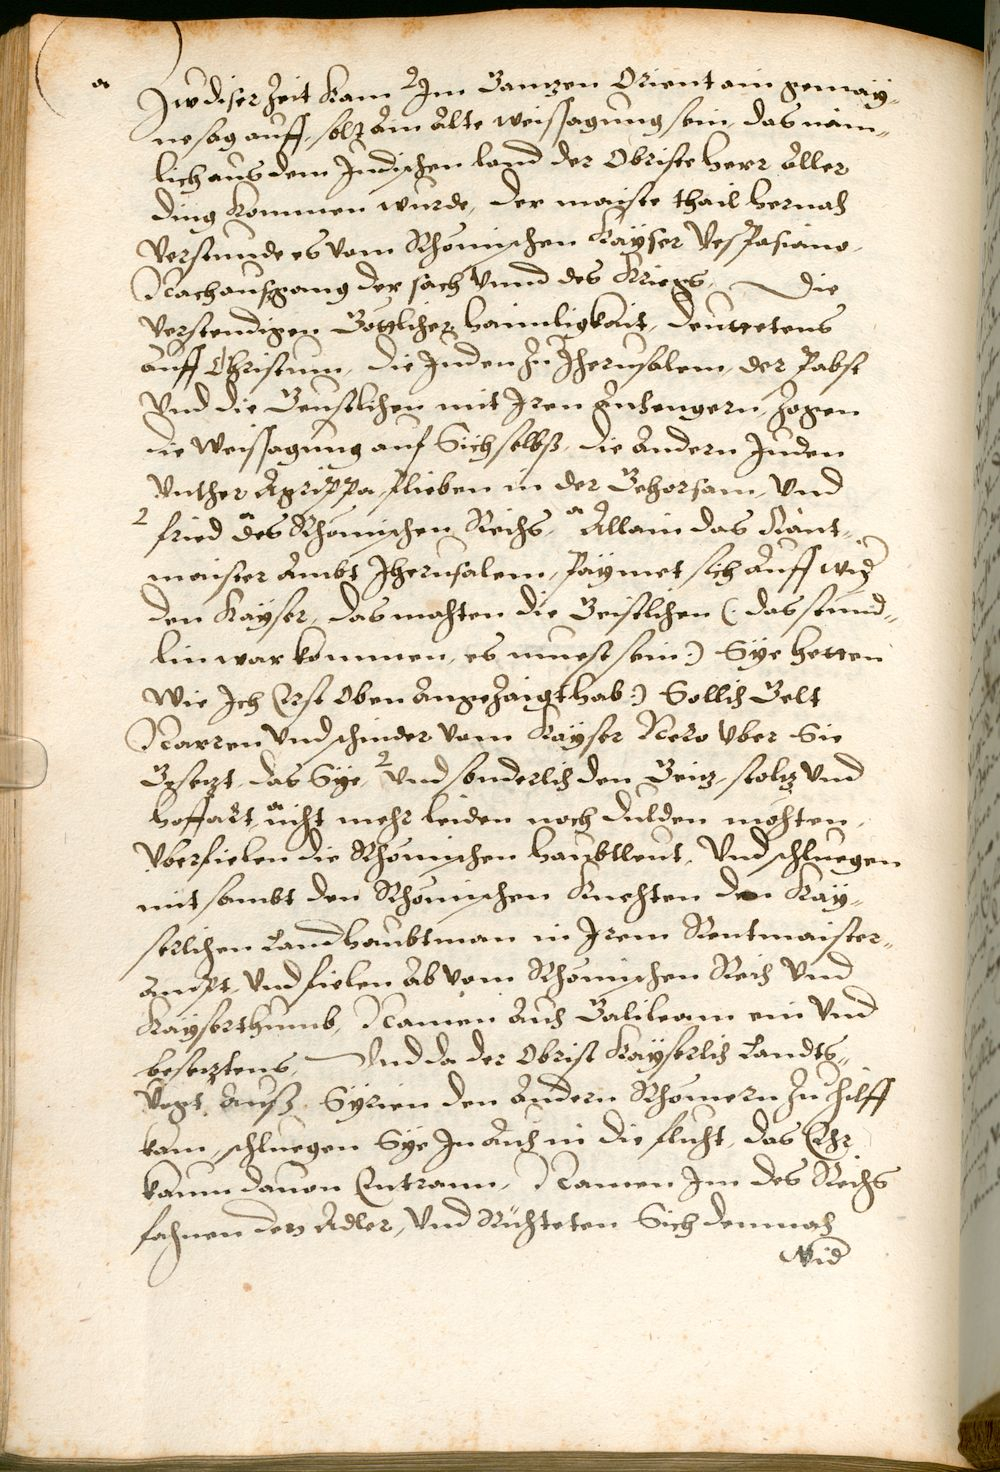 a
In diser Zeit kam Im Ganzen Orient ain gemay-
ne sag auff, solt ain Alte weissagung sein, das näm-
lich aus dem Judischen land der Obriste herr Aller
ding kommen wurde, der maiste thail hernach
Verstunde es vom Rhömischen Kayser Vespasiano,
Nach ausgang der sach Vnnd des Kriegs, Die
Verstendigen Götlicher haimligkait, deutetens
auff Christum, die Juden zu Jherusalem, der Pabst
Vnd die Geistlichen mit Iren Anhengern, zogen
die Weissagung auf Sich selbs, die Andern Juden
Vnther Agrippa, blieben in der Gehorsam, Vnd
2 fried des Rhömischen Reichs, a Allain das Ränt-
maister Ambt Jherusalem, paymet sich auff wid
den Kayser, das machten die Geistlichen (: das stünd-
lin war kommen, es muest sein :) Sye hetten
Wie Ich Erst Oben Angezaigt hab :) Sollich Gelt
Narren Vnd schinder vom Kayser Nero vber Sie
Gesezt, das Sye, 2 Vnd sonderlich den Geiz, stolz Vnd
hoffart, a nicht mehr leiden noch dulden mochten,
Vberfielen die Rhömischen haubtleut, Vnd schluegen
mit sambt den Rhömischen Knechten den Kay-
serlichen Landhaubtman in Irem Rentmaister-
ampt, Vnd fielen Ab vom Rhömischen Reich Vnd
Kayserthumb, Namen Auch Galileam ein Vnd
besetztens, Vnd da der Obrist Kayserlich Landts-
Vogt Auß Syrien den Andern Rhömern zu hilff
kam, schluegen Sye In Auch in die flucht, das Ehr
kaum dauon Entrann, Namen Im des Reichs
fahnen den Adler, Vnd Richteten Sich demnach
Wid